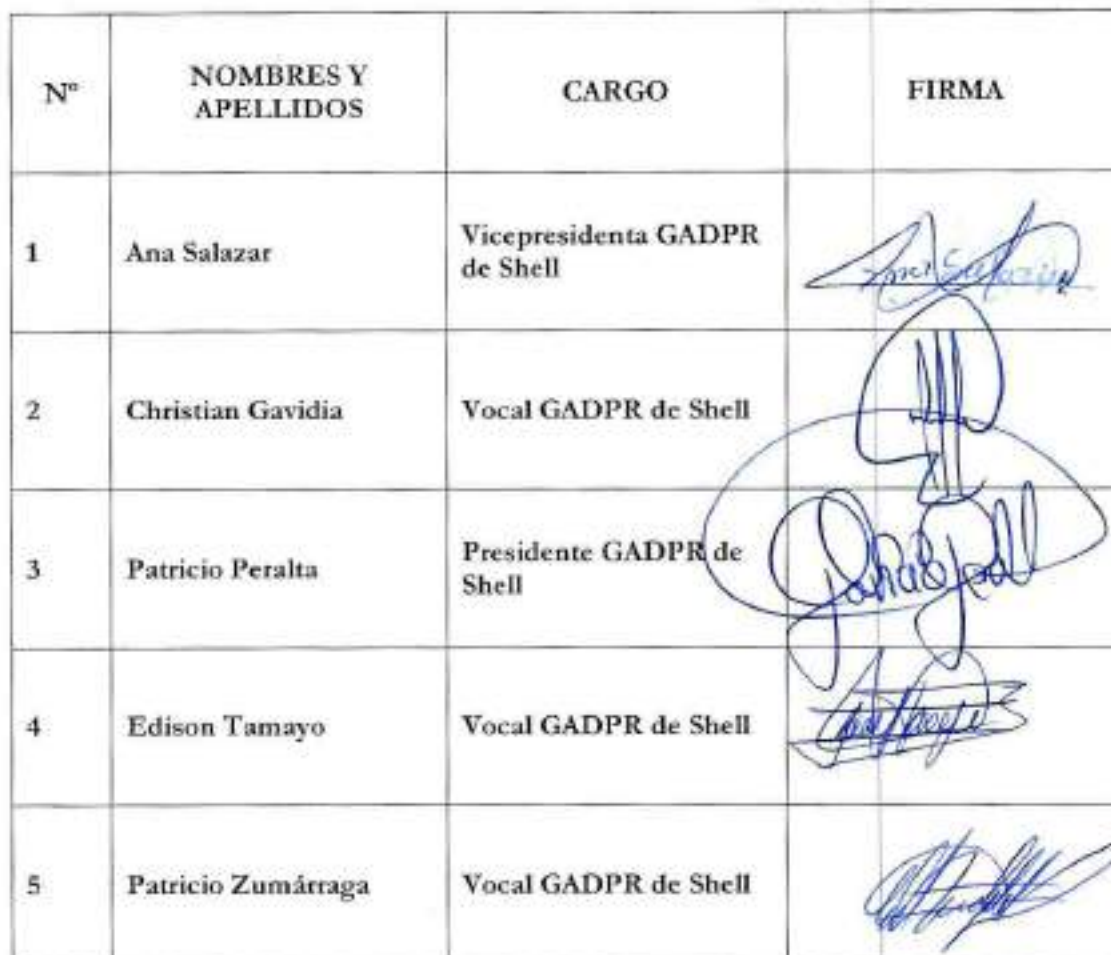 N°
NOMBRES Y
APELLIDOS
CARGO
FIRMA
1
Ana Salazar
Vicepresidenta GADPR
de Shell
Ana Salazar
2
Christian Gavidia
Vocal GADPR de Shell
3
Patricio Peralta
Presidente GADPR de
Shell
4
Edison Tamayo
Vocal GADPR de Shell
5
Patricio Zumárraga
Vocal GADPR de Shell